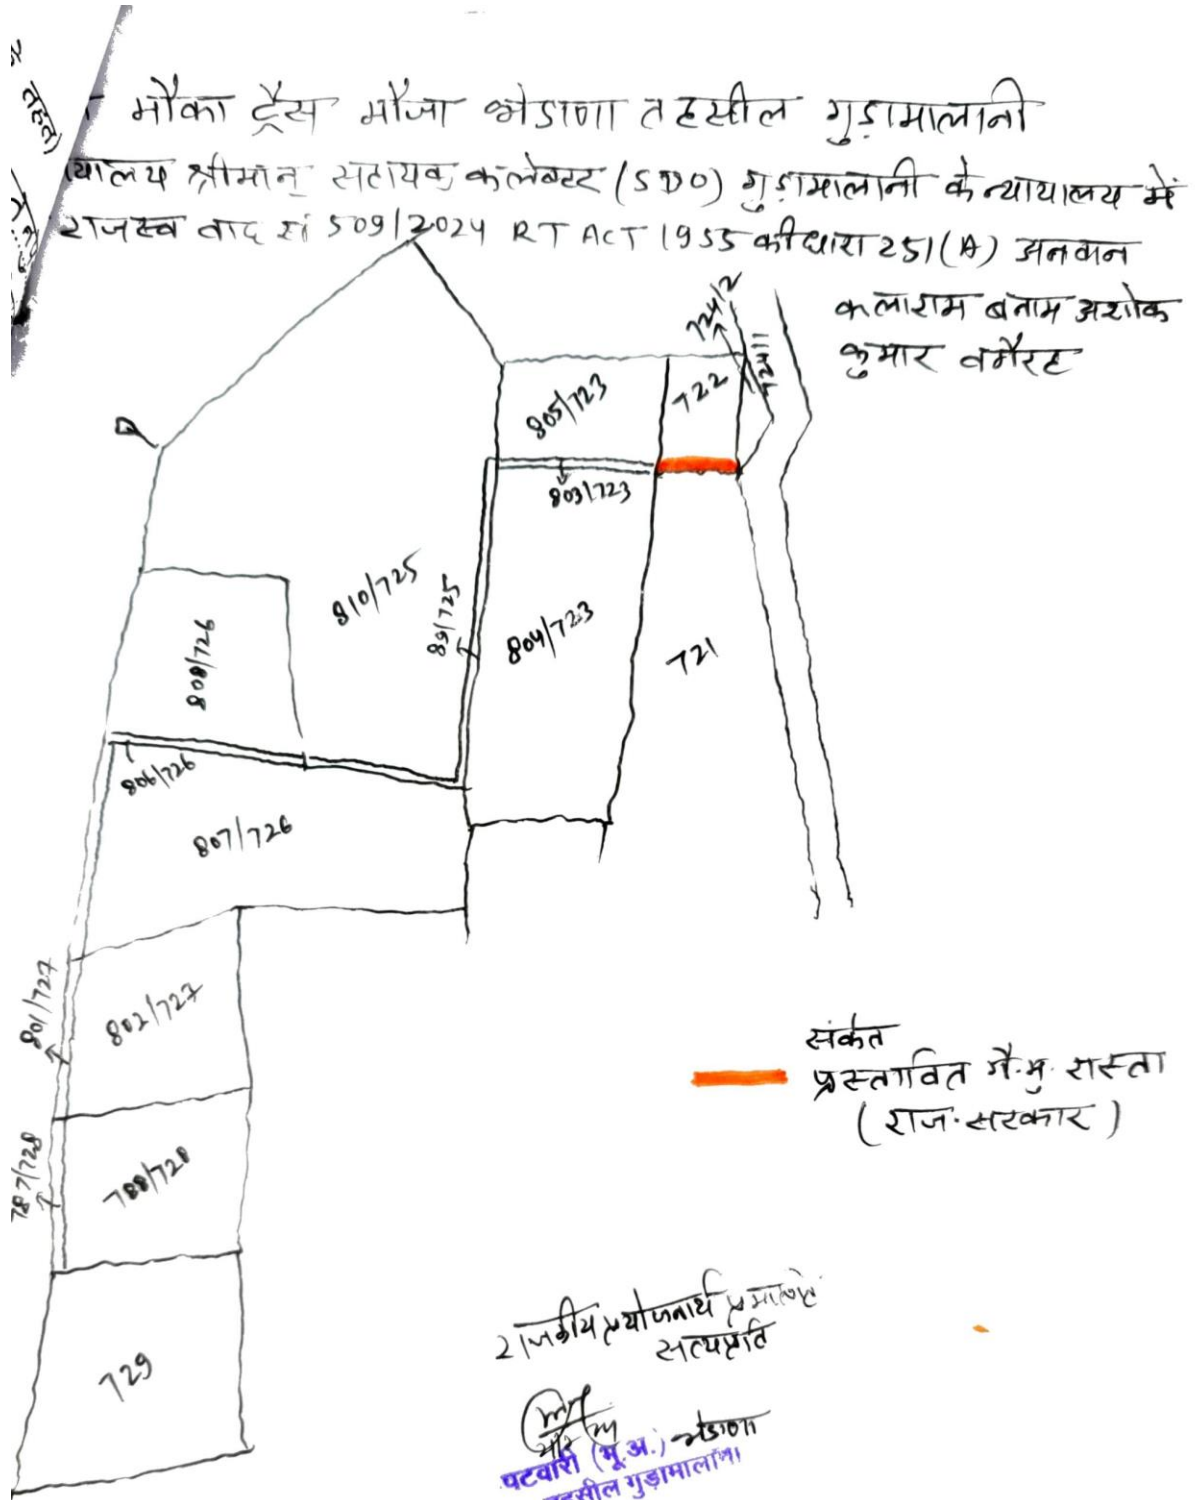 मौका ट्रैस मौजा भेडाणा तहसील गुड़ामालानी
यालय श्रीमान् सहायक कलेक्टर (SDO) गुड़ामालानी के न्यायालय में
राजस्व वाद सं 509/2024 RT ACT 1955 की धारा 251(A) अनवान
कलाराम बनाम अशोक
कुमार वगैरह
724/2
724/1
722
805/723
803/723
810/725
89/725
804/723
721
808/726
806/726
807/726
801/727
802/727
787/728
788/728
729
संकेत
प्रस्तावित गै.मु. रास्ता
(राज. सरकार)
राजकीय प्रयोजनार्थ
सत्यप्रति
पटवारी (भू.अ.) भेडाणा
तहसील गुड़ामालानी